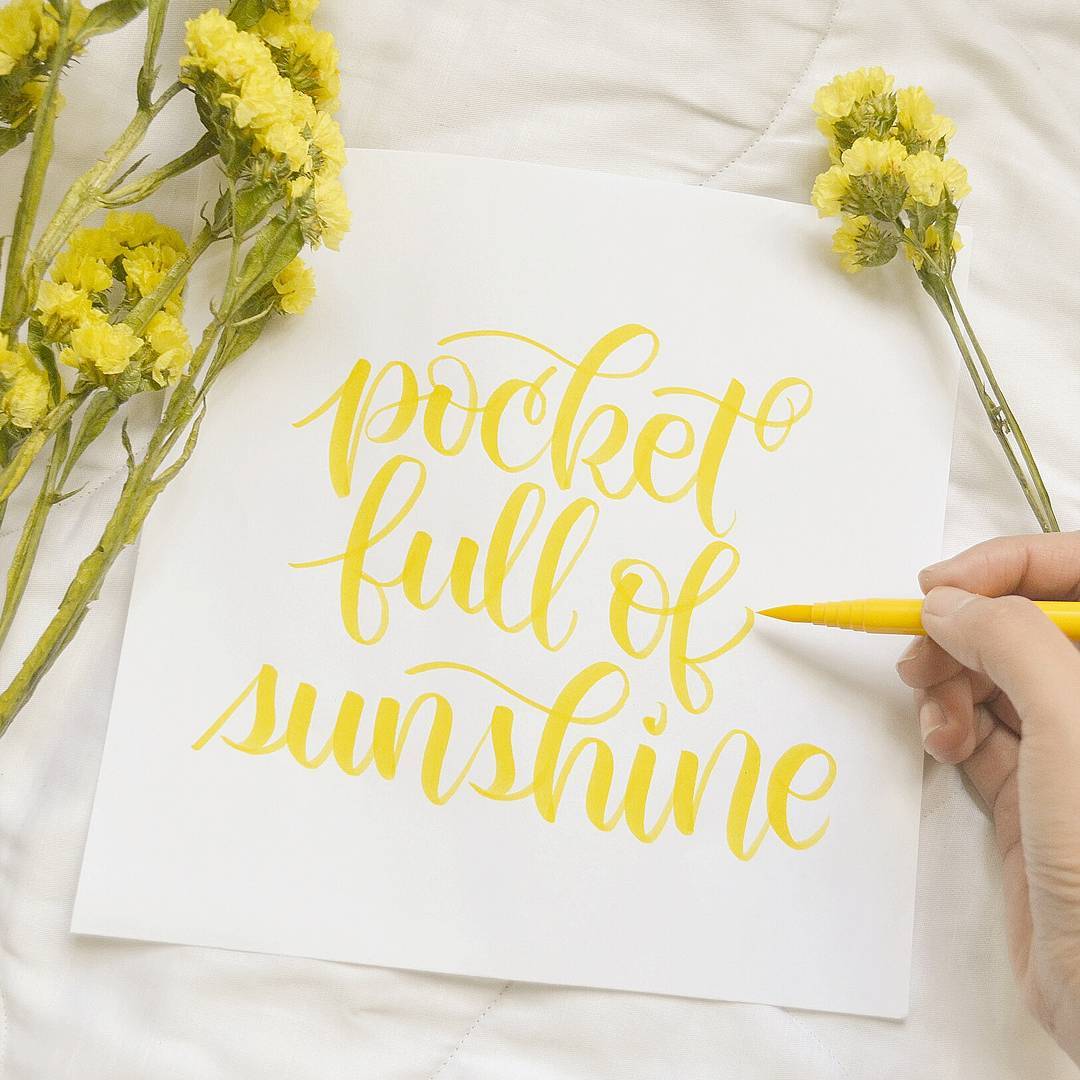 pocket
full of
sunshine